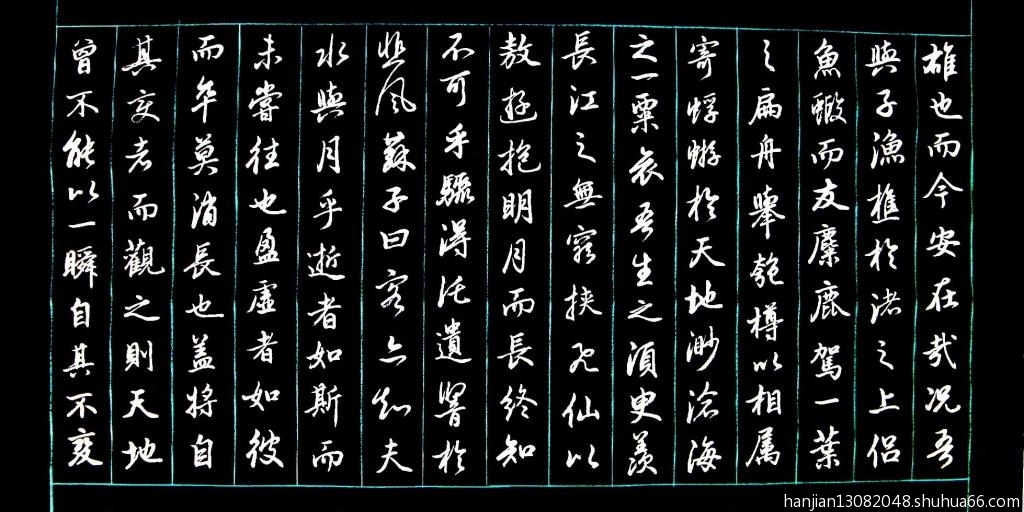 雄也而今安在哉况吾
與子漁樵於渚之上侣
魚蝦而友麋鹿駕一葉
之扁舟舉匏樽以相属
寄蜉蝣於天地渺滄海
之一粟哀吾生之須臾羨
長江之無窮挟飛仙以
敖遊抱明月而長終知
不可乎驟得托遺響於
悲風蘇子曰客亦知夫
水與月乎逝者如斯而
未嘗往也盈虚者如彼
而卒莫消長也盖将自
其变者而觀之則天地
曾不能以一瞬自其不变
hanjian13082048.shuhua66.com